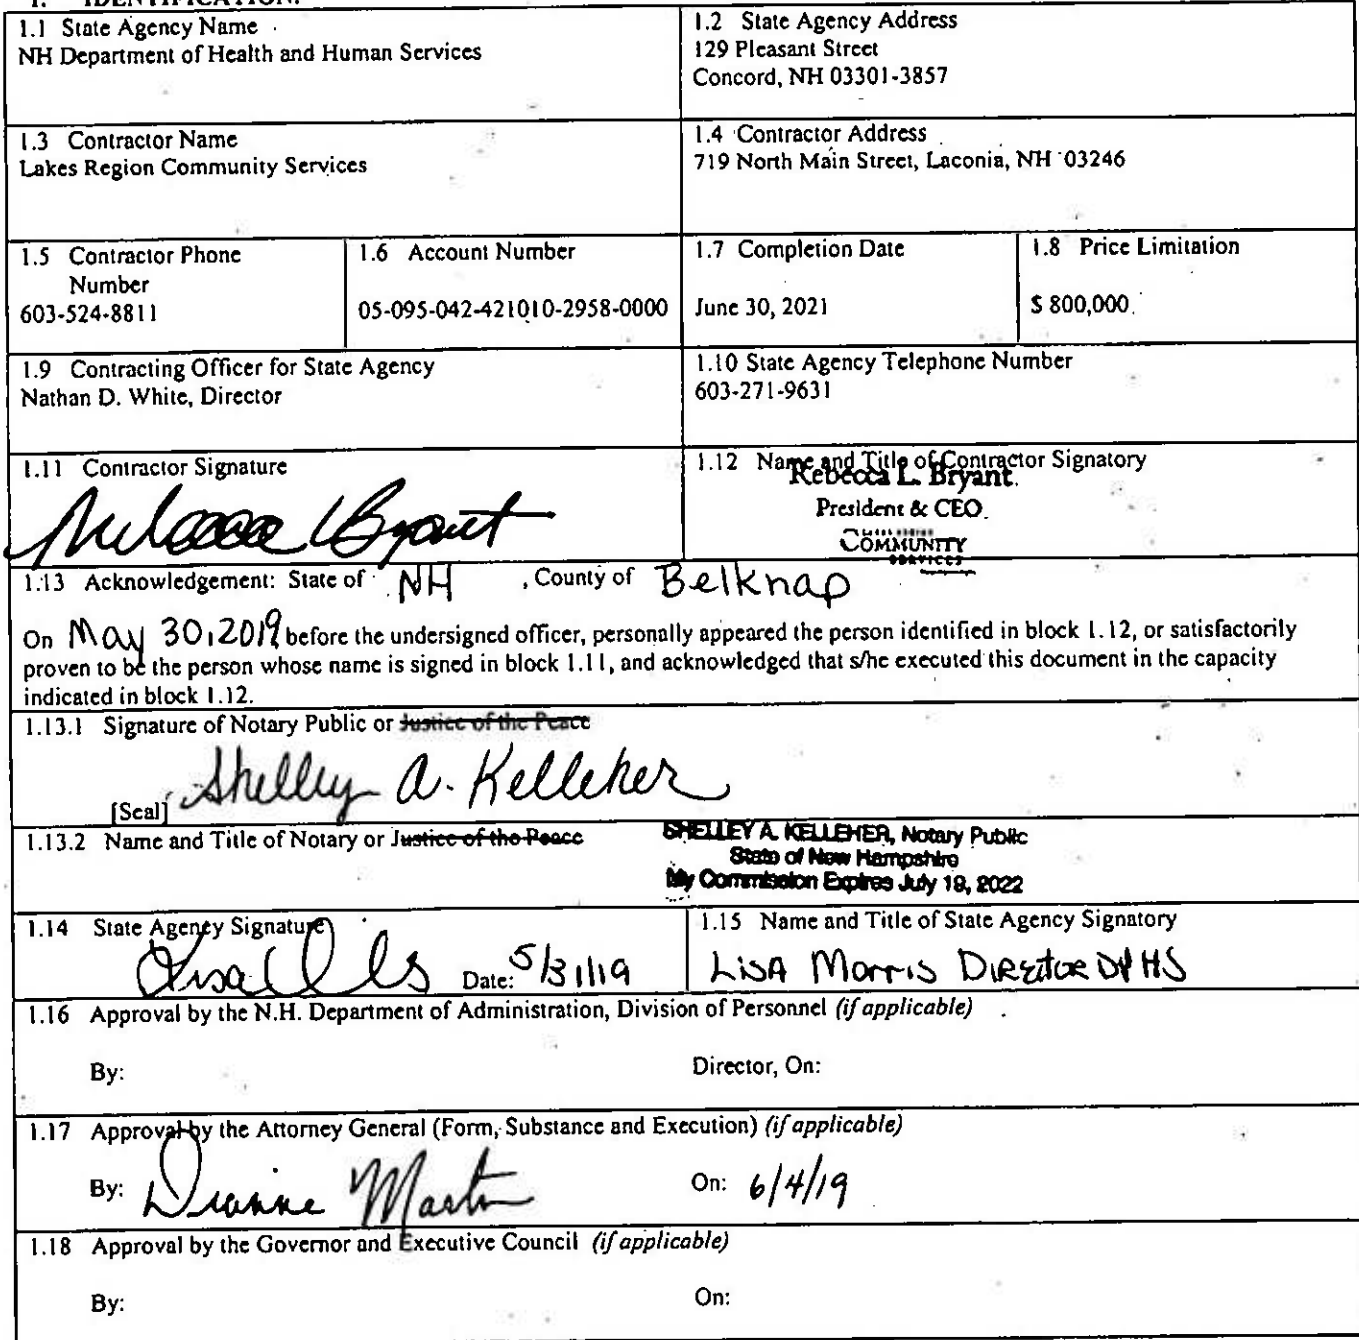 1. IDENTIFICATION.
1.1 State Agency Name
NH Department of Health and Human Services
1.2 State Agency Address
129 Pleasant Street
Concord, NH 03301-3857
1.3 Contractor Name
Lakes Region Community Services
1.4 Contractor Address
719 North Main Street, Laconia, NH 03246
1.5 Contractor Phone
Number
603-524-8811
1.6 Account Number
05-095-042-421010-2958-0000
1.7 Completion Date
June 30, 2021
1.8 Price Limitation
$ 800,000.
1.9 Contracting Officer for State Agency
Nathan D. White, Director
1.10 State Agency Telephone Number
603-271-9631
1.11 Contractor Signature
1.12 Name and Title of Contractor Signatory
Rebecca L. Bryant
President & CEO
COMMUNITY
SERVICES
1.13 Acknowledgement: State of NH , County of Belknap
On May 30, 2019 before the undersigned officer, personally appeared the person identified in block 1.12, or satisfactorily
proven to be the person whose name is signed in block 1.11, and acknowledged that s/he executed this document in the capacity
indicated in block 1.12.
1.13.1 Signature of Notary Public or Justice of the Peace
Shelley A. Kelleher
[Seal]
1.13.2 Name and Title of Notary or Justice of the Peace
SHELLEY A. KELLEHER, Notary Public
State of New Hampshire
My Commission Expires July 19, 2022
1.14 State Agency Signature
Date: 5/31/19
1.15 Name and Title of State Agency Signatory
LISA Morris DIRECTOR DPHS
1.16 Approval by the N.H. Department of Administration, Division of Personnel (if applicable)
By: Director, On:
1.17 Approval by the Attorney General (Form, Substance and Execution) (if applicable)
By: Dianne Martin On: 6/4/19
1.18 Approval by the Governor and Executive Council (if applicable)
By: On: